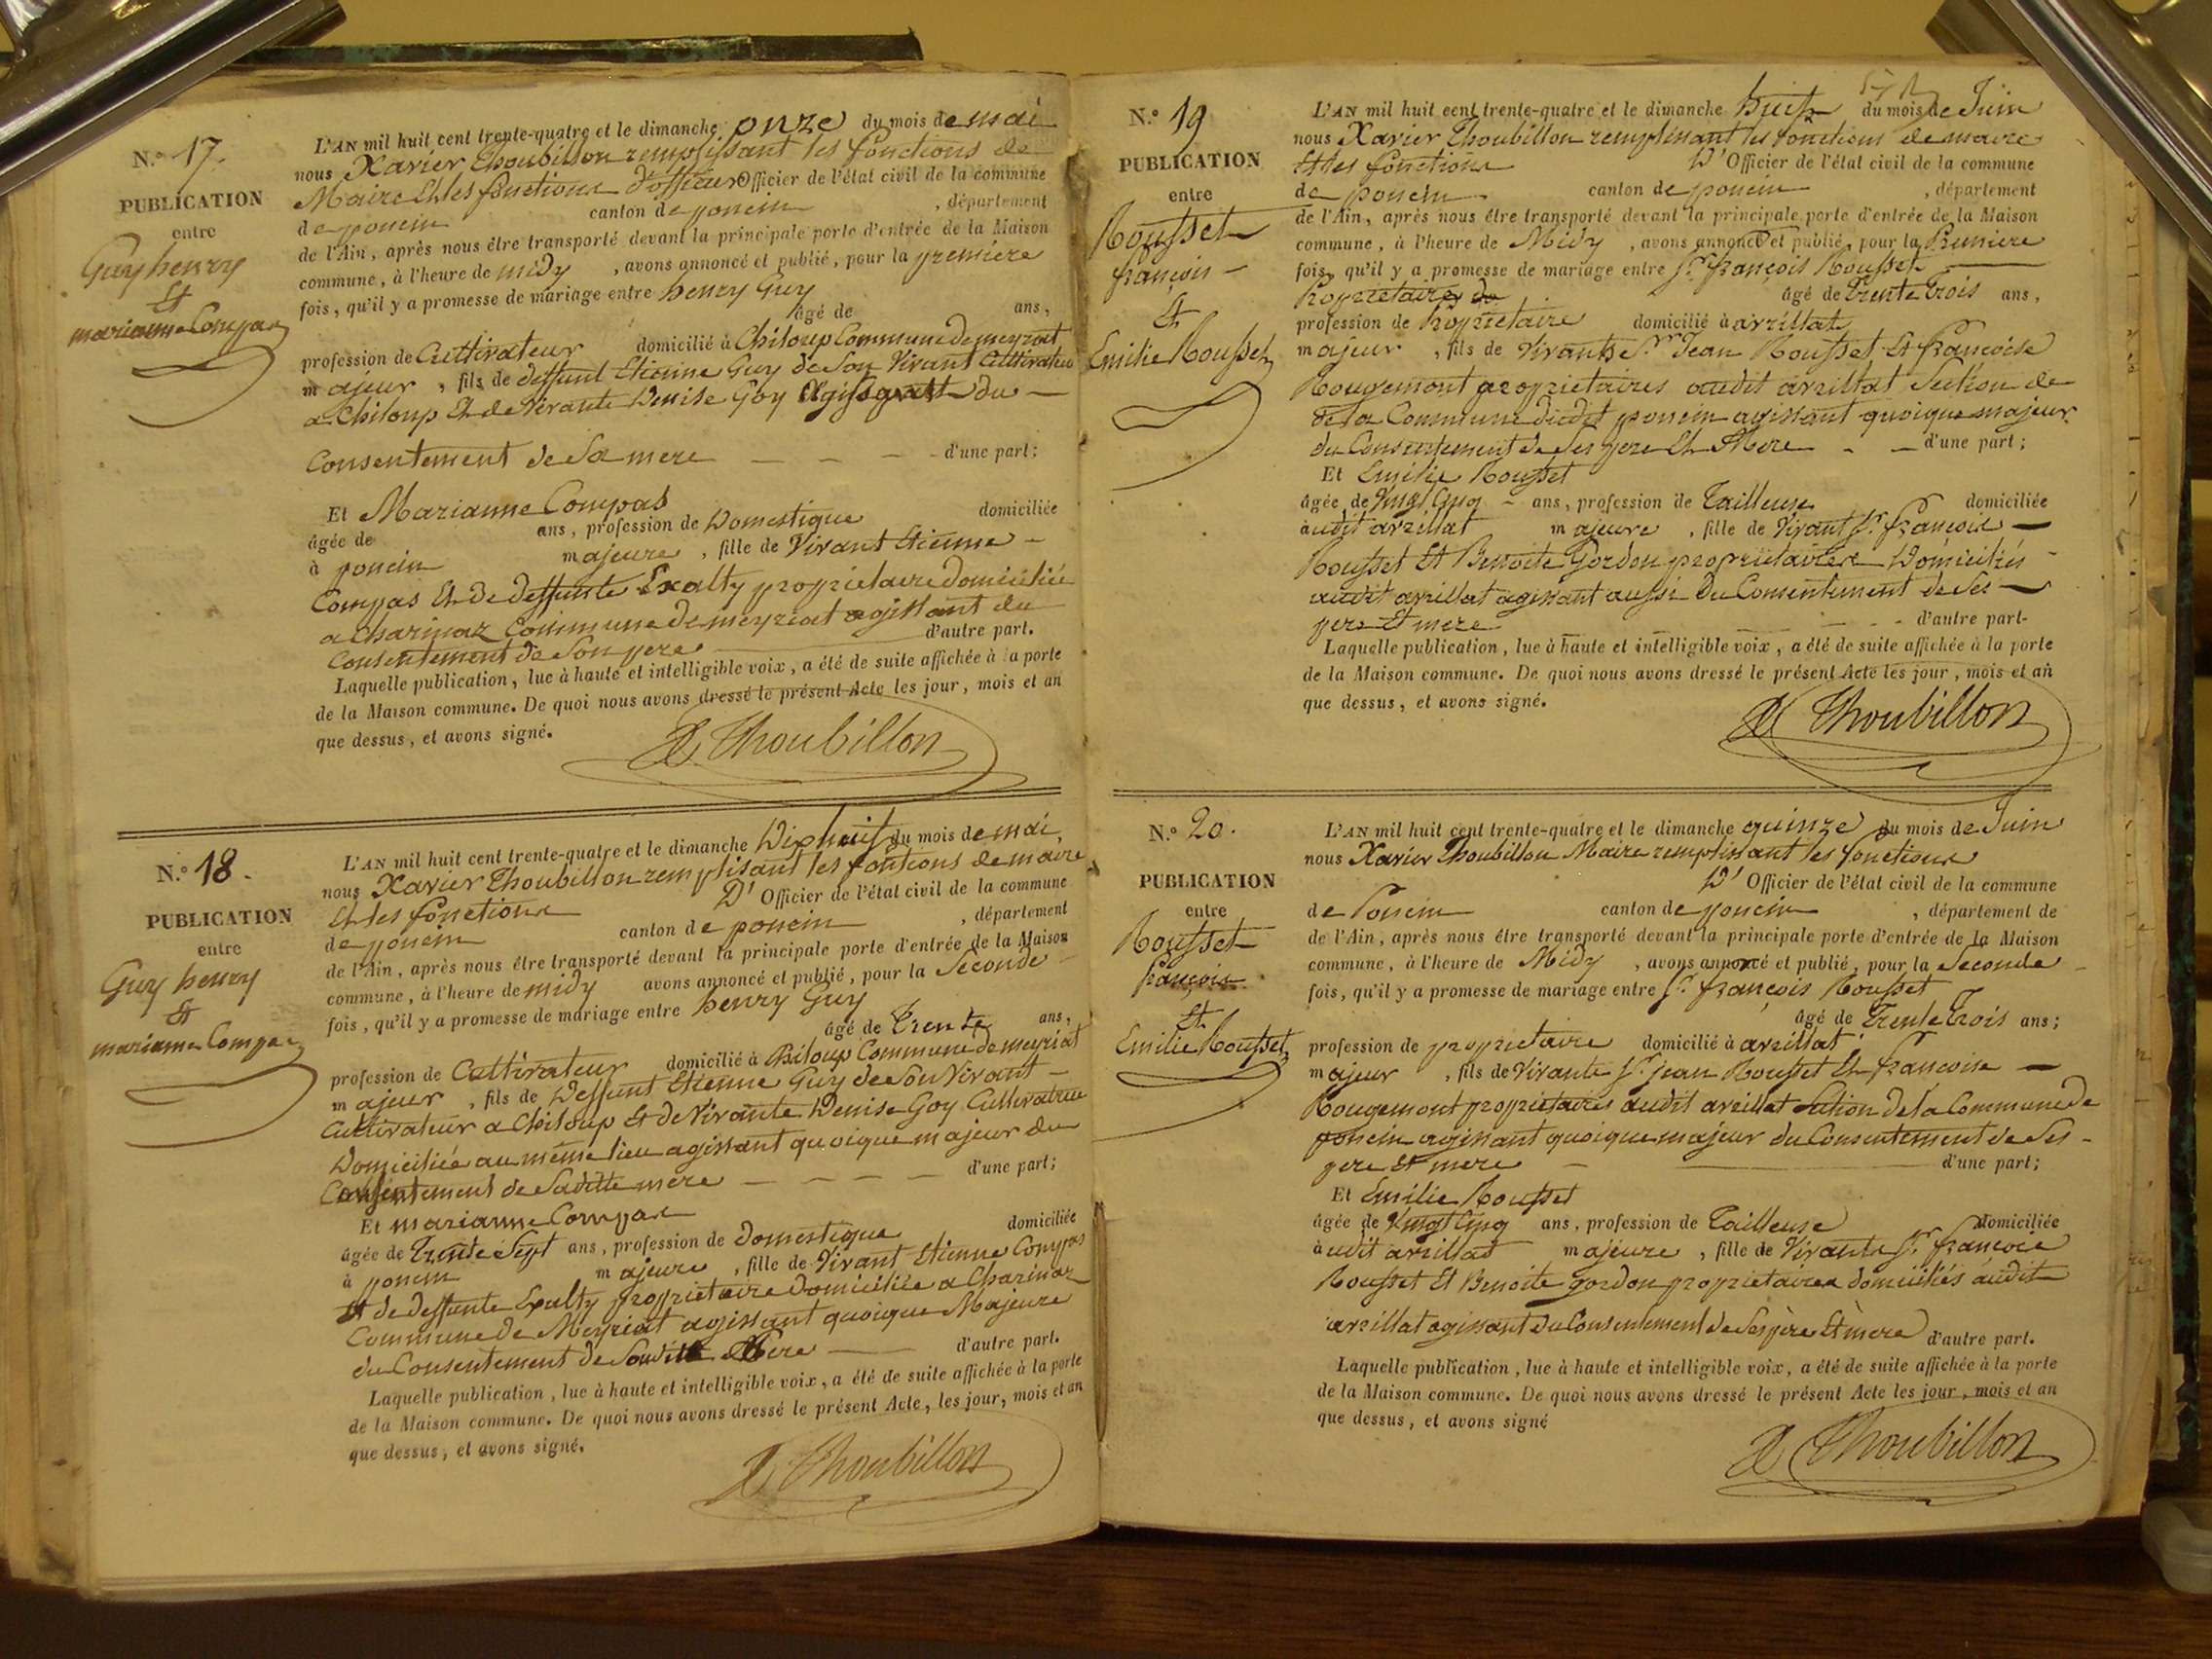 N.º 17.
PUBLICATION
entre
Guy henry
Et
marianne Compas
L'AN mil huit cent trente-quatre et le dimanche onze du mois de mai
nous Xavier Thoubillon remplissant les fonctions de
Maire Et les fonctions d'officier Officier de l'état civil de la commune
de poncin canton de poncin , département
de l'Ain, après nous être transporté devant la principale porte d'entrée de la Maison
commune, à l'heure de midy , avons annoncé et publié, pour la premiere
fois, qu'il y a promesse de mariage entre henry Guy
âgé de ans,
profession de Cultivateur domicilié à Chiloup Commune de meyriat
majeur , fils de deffunt Etienne Guy de Son Vivant Cultivateur
a Chiloup Et de Vivante Denise Goy agissant du
Consentement de Sa mere d'une part;
Et Marianne Compas
âgée de ans, profession de Domestique domiciliée
à poncin majeure , fille de Vivant Etienne
Compas Et de deffunte Exalty proprietaire domiciliée
a Charinaz Commune de meyriat agissant du
Consentement de Son pere d'autre part.
Laquelle publication, lue à haute et intelligible voix, a été de suite affichée à la porte
de la Maison commune. De quoi nous avons dressé le présent Acte les jour, mois et an
que dessus, et avons signé.
X Thoubillon
N.º 18.
PUBLICATION
entre
Guy henry
Et
marianne Compas
L'AN mil huit cent trente-quatre et le dimanche Dix huit du mois de mai
nous Xavier Thoubillon remplisant les fontions de maire
Et les fonctions D' Officier de l'état civil de la commune
de poncin canton de poncin , département
de l'Ain, après nous être transporté devant la principale porte d'entrée de la Maison
commune, à l'heure de midy avons annoncé et publié, pour la Seconde
fois, qu'il y a promesse de mariage entre henry Guy
âgé de Trente ans,
profession de Cultivateur domicilié à Chiloup Commune de meyriat
majeur , fils de Deffunt Etienne Guy de Son Vivant
Cultivateur a Chiloup Et de Vivante Denise Goy Cultivatrice
Domiciliée au même lieu agissant quoique majeur du
Consentement de Saditte mere d'une part;
Et marianne Compas
âgée de Trente Sept ans, profession de domestique domiciliée
à poncin majeure , fille de Vivant Etienne Compas
Et de deffunte Exalty proprietaire domiciliée a Charinaz
Commune de Meyriat agissant quoique Majeure
du Consentement de Sondit Pere d'autre part.
Laquelle publication, lue à haute et intelligible voix, a été de suite affichée à la porte
de la Maison commune. De quoi nous avons dressé le présent Acte, les jour, mois et an
que dessus, et avons signé.
X Thoubillon
N.º 19
PUBLICATION
entre
Rousset
françois
Et
Emilie Rousset
L'AN mil huit cent trente-quatre et le dimanche huit du mois de Juin
nous Xavier Thoubillon remplissant les fonctions de maire
Et les fonctions D' Officier de l'état civil de la commune
de poncin canton de poncin , département
de l'Ain, après nous être transporté devant la principale porte d'entrée de la Maison
commune, à l'heure de Midy , avons annoncé et publié, pour la Premiere
fois, qu'il y a promesse de mariage entre Sr. françois Rousset
Proprietaire de âgé de Trente Trois ans,
profession de Proprietaire domicilié à arzillat
majeur , fils de Vivants Sr. Jean Rousset Et francoise
Rougemont proprietaires audit arzillat Section de
de la Commune dudit poncin agissant quoique majeur
du Consentement de Ses pere Et Mere d'une part;
Et Emilie Rousset
âgée de Vingt Cinq ans, profession de Tailleuse domiciliée
àudit arzillat majeure , fille de Vivant Sr. françois
Rousset Et Benoite Gordon proprietaires Domiciliés
audit arzillat agissant aussi du Consentement de Ses
pere Et mere d'autre part-
Laquelle publication, lue à haute et intelligible voix, a été de suite affichée à la porte
de la Maison commune. De quoi nous avons dressé le présent Acte les jour, mois et an
que dessus, et avons signé.
X Thoubillon
N.º 20.
PUBLICATION
entre
Rousset
françois
Et
Emilie Rousset
L'AN mil huit cent trente-quatre et le dimanche quinze du mois de Juin
nous Xavier Thoubillon Maire remplissant les fonctions
D' Officier de l'état civil de la commune
de Poncin canton de poncin , département de
de l'Ain, après nous être transporté devant la principale porte d'entrée de la Maison
commune, à l'heure de Midy , avons annoncé et publié, pour la Seconde
fois, qu'il y a promesse de mariage entre Sr. françois Rousset
âgé de Trente Trois ans;
profession de proprietaire domicilié à arzillat
majeur , fils de Vivants Sr. jean Rousset Et francoise
Rougemont proprietaires audit arzillat Section de la Commune de
poncin agissant quoique majeur du Consentement de Ses
pere Et mere d'une part;
Et Emilie Rousset
âgée de Vingt Cinq ans, profession de Tailleuse domiciliée
àudit arzillat majeure , fille de Vivants Sr. françois
Rousset Et Benoite gordon proprietaires domiciliés audit
arzillat agissant du Consentement de Ses père Et mère d'autre part.
Laquelle publication, lue à haute et intelligible voix, a été de suite affichée à la porte
de la Maison commune. De quoi nous avons dressé le présent Acte les jour, mois et an
que dessus, et avons signé
X Thoubillon